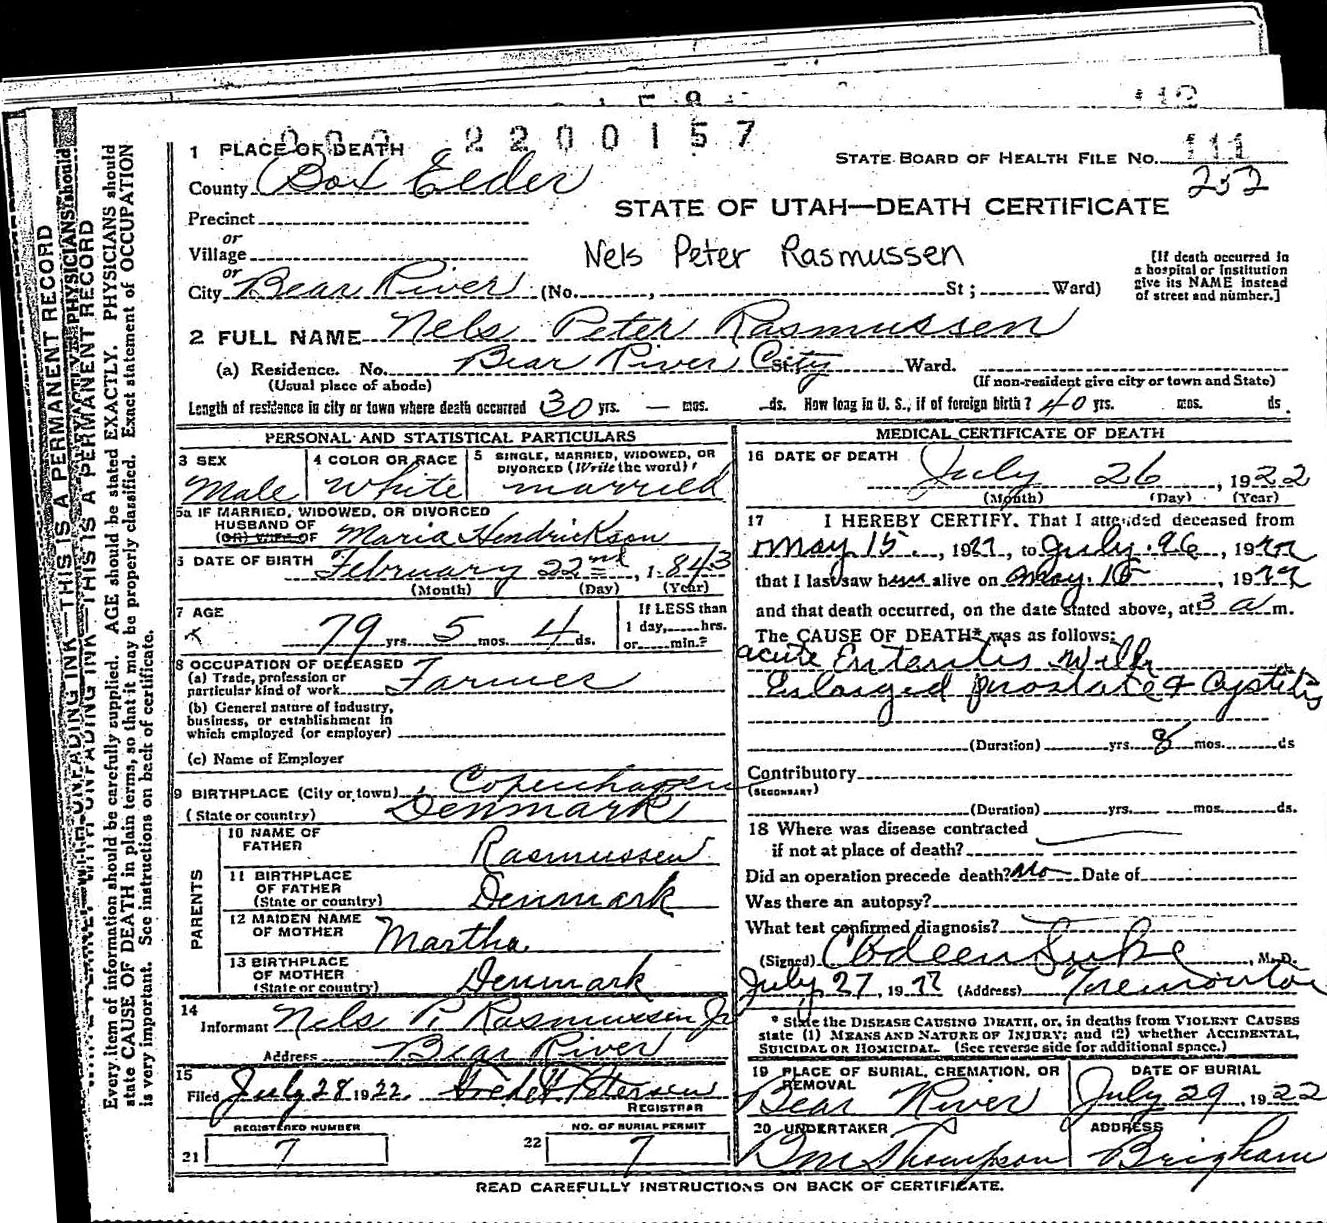 112
2200157
1 PLACE OF DEATH
STATE BOARD OF HEALTH FILE No. 111
252
County Box Elder
STATE OF UTAH—DEATH CERTIFICATE
Precinct
or
Village
Nels Peter Rasmussen
[If death occurred in a hospital or institution give its NAME instead of street and number.]
or
City Bear River (No. , St ; Ward)
2 FULL NAME Nels Peter Rasmussen
(a) Residence. No. Bear River City St. Ward.
(Usual place of abode) (If non-resident give city or town and State)
Length of residence in city or town where death occurred 30 yrs. — mos. ds. How long in U. S., if of foreign birth? 40 yrs. mos. ds.
PERSONAL AND STATISTICAL PARTICULARS
3 SEX
Male
4 COLOR OR RACE
White
5 SINGLE, MARRIED, WIDOWED, OR DIVORCED (Write the word)
married
5a IF MARRIED, WIDOWED, OR DIVORCED
HUSBAND OF
(OR) WIFE OF Maria Hendrickson
6 DATE OF BIRTH February 22nd, 1843
(Month) (Day) (Year)
7 AGE
79 yrs. 5 mos. 4 ds.
If LESS than
1 day, hrs.
or min.?
8 OCCUPATION OF DECEASED
(a) Trade, profession or
particular kind of work Farmer
(b) General nature of industry,
business, or establishment in
which employed (or employer)
(c) Name of Employer
9 BIRTHPLACE (City or town) Copenhagen
(State or country) Denmark
PARENTS
10 NAME OF
FATHER Rasmussen
11 BIRTHPLACE
OF FATHER
(State or country) Denmark
12 MAIDEN NAME
OF MOTHER Martha
13 BIRTHPLACE
OF MOTHER
(State or country) Denmark
14
Informant Nels P. Rasmussen Jr
Address Bear River
15
Filed July 28 1922. Petersen
REGISTRAR
REGISTERED NUMBER
21 7
NO. OF BURIAL PERMIT
22 7
MEDICAL CERTIFICATE OF DEATH
16 DATE OF DEATH
July 26, 1922
(Month) (Day) (Year)
17 I HEREBY CERTIFY. That I attended deceased from
May 15, 1922, to July 26, 1922
that I last saw h alive on May 15, 1922
and that death occurred, on the date stated above, at 3 a m.
The CAUSE OF DEATH* was as follows:
acute Enteritis with
Enlarged prostate & Cystitis
(Duration) yrs. 8 mos. ds
Contributory
(SECONDARY)
(Duration) yrs. mos. ds.
18 Where was disease contracted
if not at place of death?
Did an operation precede death? No Date of
Was there an autopsy?
What test confirmed diagnosis?
(Signed) Odeen Luke, M. D.
July 27, 1922 (Address) Tremonton
* State the DISEASE CAUSING DEATH, or, in deaths from VIOLENT CAUSES
state (1) MEANS AND NATURE OF INJURY; and (2) whether ACCIDENTAL,
SUICIDAL OR HOMICIDAL. (See reverse side for additional space.)
19 PLACE OF BURIAL, CREMATION, OR
REMOVAL
Bear River
DATE OF BURIAL
July 29, 1922
20 UNDERTAKER
Thompson
ADDRESS
Brigham
READ CAREFULLY INSTRUCTIONS ON BACK OF CERTIFICATE.
THIS IS A PERMANENT RECORD
Every item of information should be carefully supplied. AGE should be stated EXACTLY. PHYSICIANS should
state CAUSE OF DEATH in plain terms, so that it may be properly classified. Exact statement of OCCUPATION
is very important. See instructions on back of certificate.